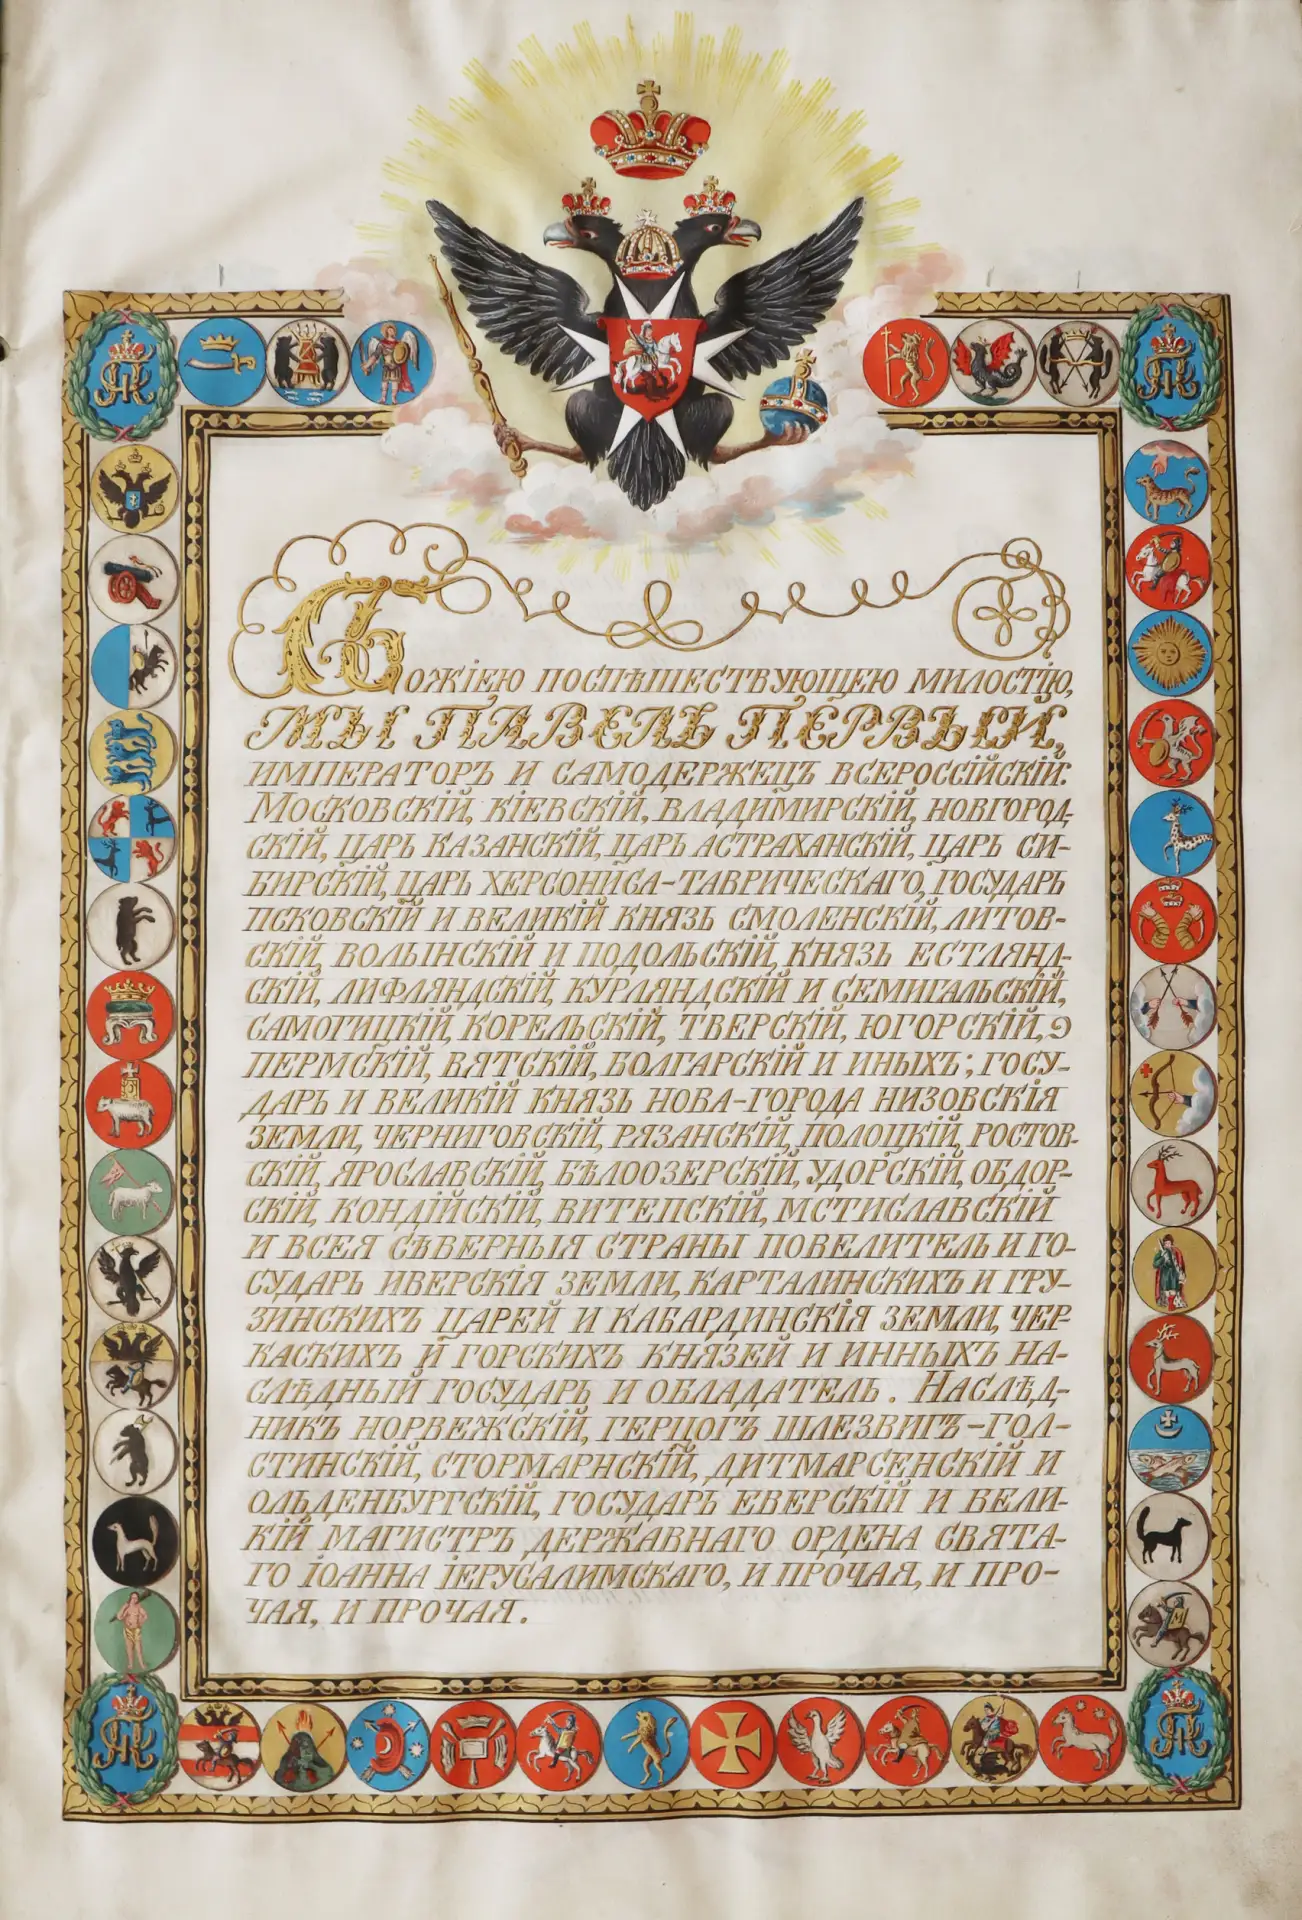 Божіею поспѣшествующею милостію,
МЫ ПАВЕЛЪ ПЕРВЫЙ,
ИМПЕРАТОРЪ И САМОДЕРЖЕЦЪ ВСЕРОССІЙСКІЙ:
МОСКОВСКІЙ, КІЕВСКІЙ, ВЛАДИМИРСКІЙ, НОВГОРОД-
СКІЙ, ЦАРЬ КАЗАНСКІЙ, ЦАРЬ АСТРАХАНСКІЙ, ЦАРЬ СИ-
БИРСКІЙ, ЦАРЬ ХЕРСОНИСА-ТАВРИЧЕСКАГО, ГОСУДАРЬ
ПСКОВСКІЙ И ВЕЛИКІЙ КНЯЗЬ СМОЛЕНСКІЙ, ЛИТОВ-
СКІЙ, ВОЛЫНСКІЙ И ПОДОЛЬСКІЙ, КНЯЗЬ ЕСТЛЯНД-
СКІЙ, ЛИФЛЯНДСКІЙ, КУРЛЯНДСКІЙ И СЕМИГАЛЬСКІЙ,
САМОГИЦКІЙ, КОРЕЛЬСКІЙ, ТВЕРСКІЙ, ЮГОРСКІЙ,
ПЕРМСКІЙ, ВЯТСКІЙ, БОЛГАРСКІЙ И ИНЫХЪ; ГОСУ-
ДАРЬ И ВЕЛИКІЙ КНЯЗЬ НОВА-ГОРОДА НИЗОВСКІЯ
ЗЕМЛИ, ЧЕРНИГОВСКІЙ, РЯЗАНСКІЙ, ПОЛОЦКІЙ, РОСТОВ-
СКІЙ, ЯРОСЛАВСКІЙ, БѢЛООЗЕРСКІЙ, УДОРСКІЙ, ОБДОР-
СКІЙ, КОНДІЙСКІЙ, ВИТЕПСКІЙ, МСТИСЛАВСКІЙ
И ВСЕЯ СѢВЕРНЫЯ СТРАНЫ ПОВЕЛИТЕЛЬ И ГО-
СУДАРЬ ИВЕРСКІЯ ЗЕМЛИ, КАРТАЛИНСКИХЪ И ГРУ-
ЗИНСКИХЪ ЦАРЕЙ И КАБАРДИНСКІЯ ЗЕМЛИ, ЧЕР-
КАСКИХЪ И ГОРСКИХЪ КНЯЗЕЙ И ИННЫХЪ НА-
СЛѢДНЫЙ ГОСУДАРЬ И ОБЛАДАТЕЛЬ. НАСЛѢД-
НИКЪ НОРВЕЖСКІЙ, ГЕРЦОГЪ ШЛЕЗВИГЪ-ГОЛ-
СТИНСКІЙ, СТОРМАРНСКІЙ, ДИТМАРСЕНСКІЙ И
ОЛЬДЕНБУРГСКІЙ, ГОСУДАРЬ ЕВЕРСКІЙ И ВЕЛИ-
КІЙ МАГИСТРЪ ДЕРЖАВНАГО ОРДЕНА СВЯТА-
ГО ІОАННА ІЕРУСАЛИМСКАГО, И ПРОЧАЯ, И ПРО-
ЧАЯ, И ПРОЧАЯ.